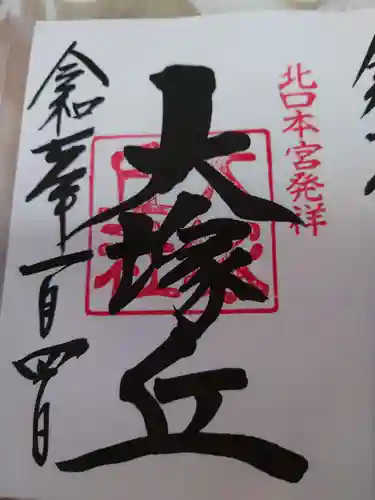 北口本宮発祥
大塚丘
令和五年一月四日